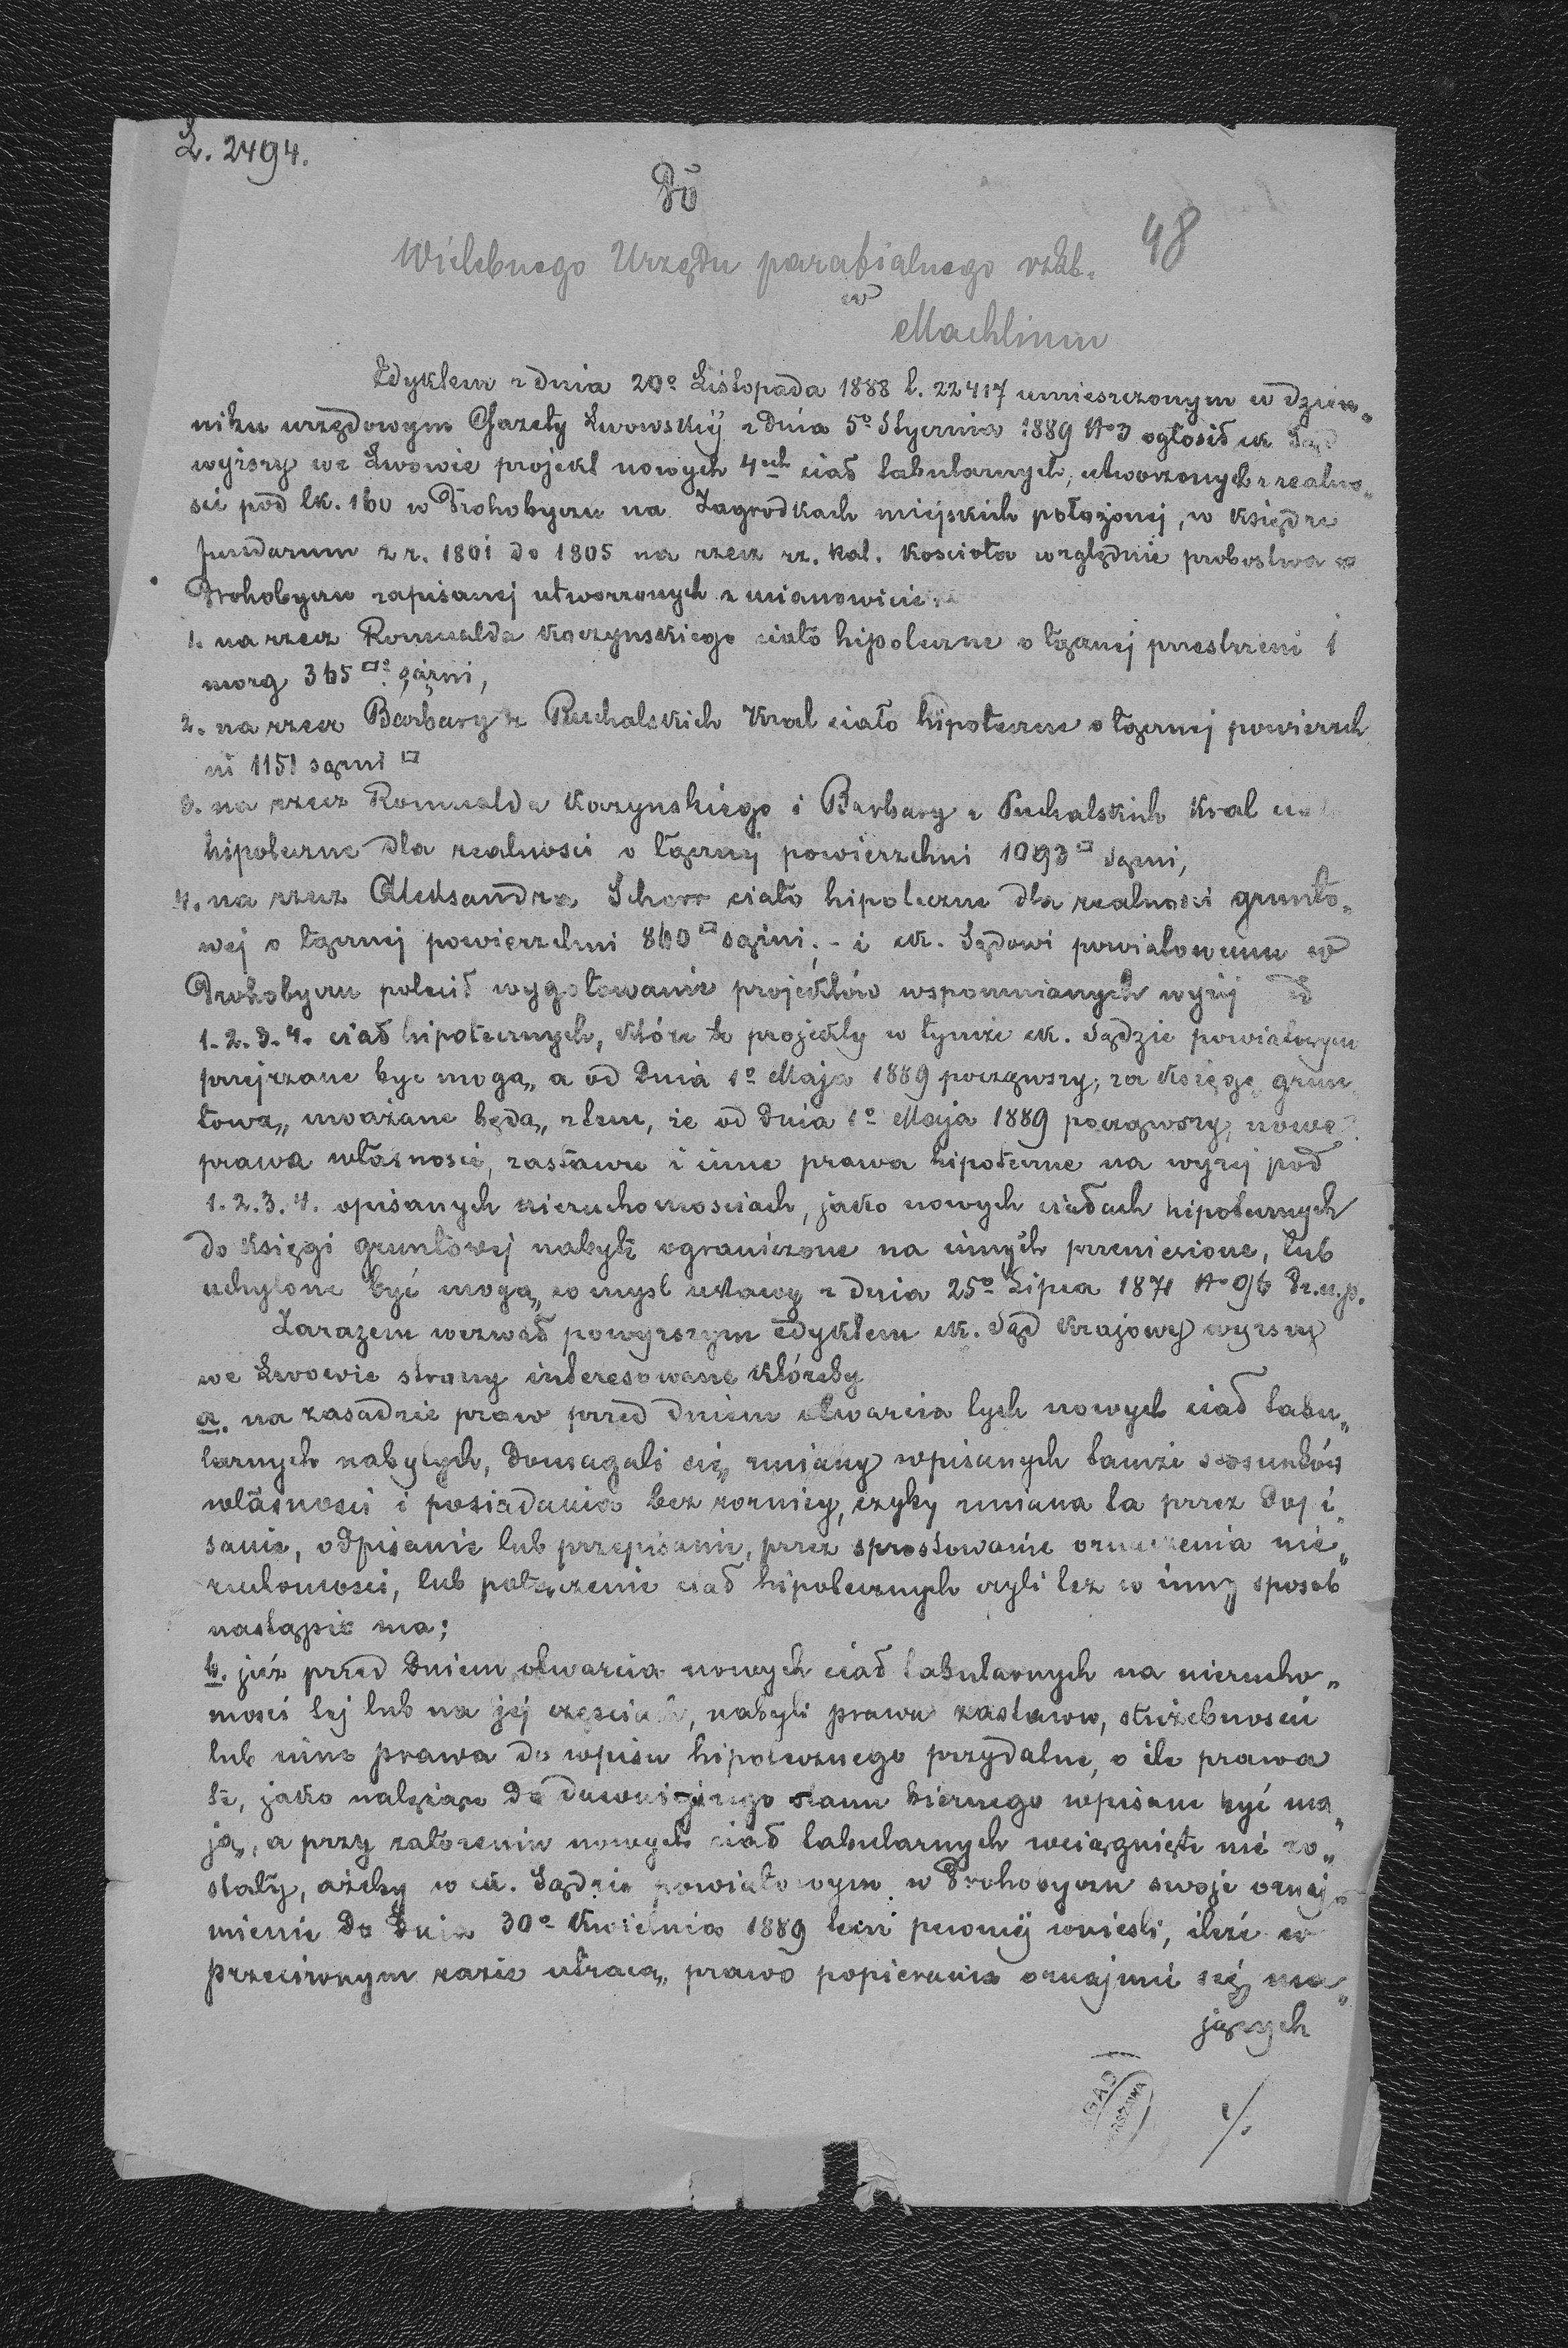 L. 2494.
Do
48
Wielebnego Urzędu parafialnego rzkb.
w
Machlincu
Edyktem z dnia 20o Listopada 1888 l. 22417 umieszczonym w dzien„
niku urzędowym Gazety Lwowskij z dnia 5o Stycznia 1889 No 3 ogłosił ck Sąd
wyższy we Lwowie projekt nowych 4ech ciał tabularnych, utworzonych z realno„
sci pod lk. 160 w Drohobyczu na Zagrodkach miejskich położonej, w księdze
fundarum z r. 1801 do 1805 na rzecz rz. kat. Kościoła względnie probostwa w
Drohobyczu zapisanej utworzonych a mianowicie:
1. na rzecz Romualda Kaczynskiego ciało hipoteczne o łącznej przestrzeni 1
morg 365 □o sążni,
2. na rzecz Barbary z Puchalskich Kral ciało hipoteczne o łącznej powierzch
ni 1151 sążni □
3. na rzecz Romualda Kaczynskiego i Barbary z Puchalskich Kral ciało
hipoteczne dla realnosci o łącznej powierzchni 1093 □ sążni,
4. na rzecz Aleksandra Schorr ciało hipoteczne dla realnosci grunto„
wej o łącznej powierzchni 860 □ sążni; - i ck. Sądowi powiatowemu w
Drohobyczu polecił wygotowanie projektów wspomnianych wyżej ad
1. 2. 3. 4. ciał hipotecznych, które te projekty w tymże ck. Sądzie powiatowym
przejrzane być mogą, a od dnia 1o Maja 1889 począwszy, za księgę grun„
tową uważane będą, z tem, że od dnia 1o Maja 1889 począwszy, nowe
prawa własnosci, zastawu i inne prawa hipoteczne na wyżej pod
1. 2. 3. 4. opisanych nieruchomosciach, jako nowych ciałach hipotecznych
do księgi gruntowej nabyte ograniczone na innych przeniesione, lub
uchylone być mogą w mysl ustawy z dnia 25o Lipca 1871 No 96 Dz.u.p.
Zarazem wezwał powyższym edyktem ck. Sąd krajowy wyższy
we Lwowie strony interesowane któreby
a. na zasadzie praw przed dniem otwarcia tych nowych ciał tabu„
larnych nabytych, domagali się zmiany wpisanych tamże stosunków
własnosci i posiadania bez roznicy, czyby zmiana ta przez dopi„
sanie, odpisanie lub przepisanie, przez sprostowanie oznaczenia nie„
ruchomosci, lub połączenie ciał hipotecznych czyli tez w inny sposob
nastąpic ma;
b. już przed dniem otwarcia nowych ciał tabularnych na nierucho„
mosci tej lub na jej częsciach, nabyli prawa zastawu, służebnosci
lub inne prawa do wpisu hipotecznego przydatne, o ile prawa
te, jako należące do dawniejszego stanu biernego wpisane być ma„
ją, a przy założeniu nowych ciał tabularnych wciągnięte nie zo„
stały, ażeby w ck. Sądzie powiatowym w Drohobyczu swoje oznaj„
mienie do dnia 30o Kwietnia 1889 tem pewnij wniesli, ileże w
przeciwnym razie utracą prawo popierania oznajmić się ma„
jących
AGAD
WARSZAWA
./.